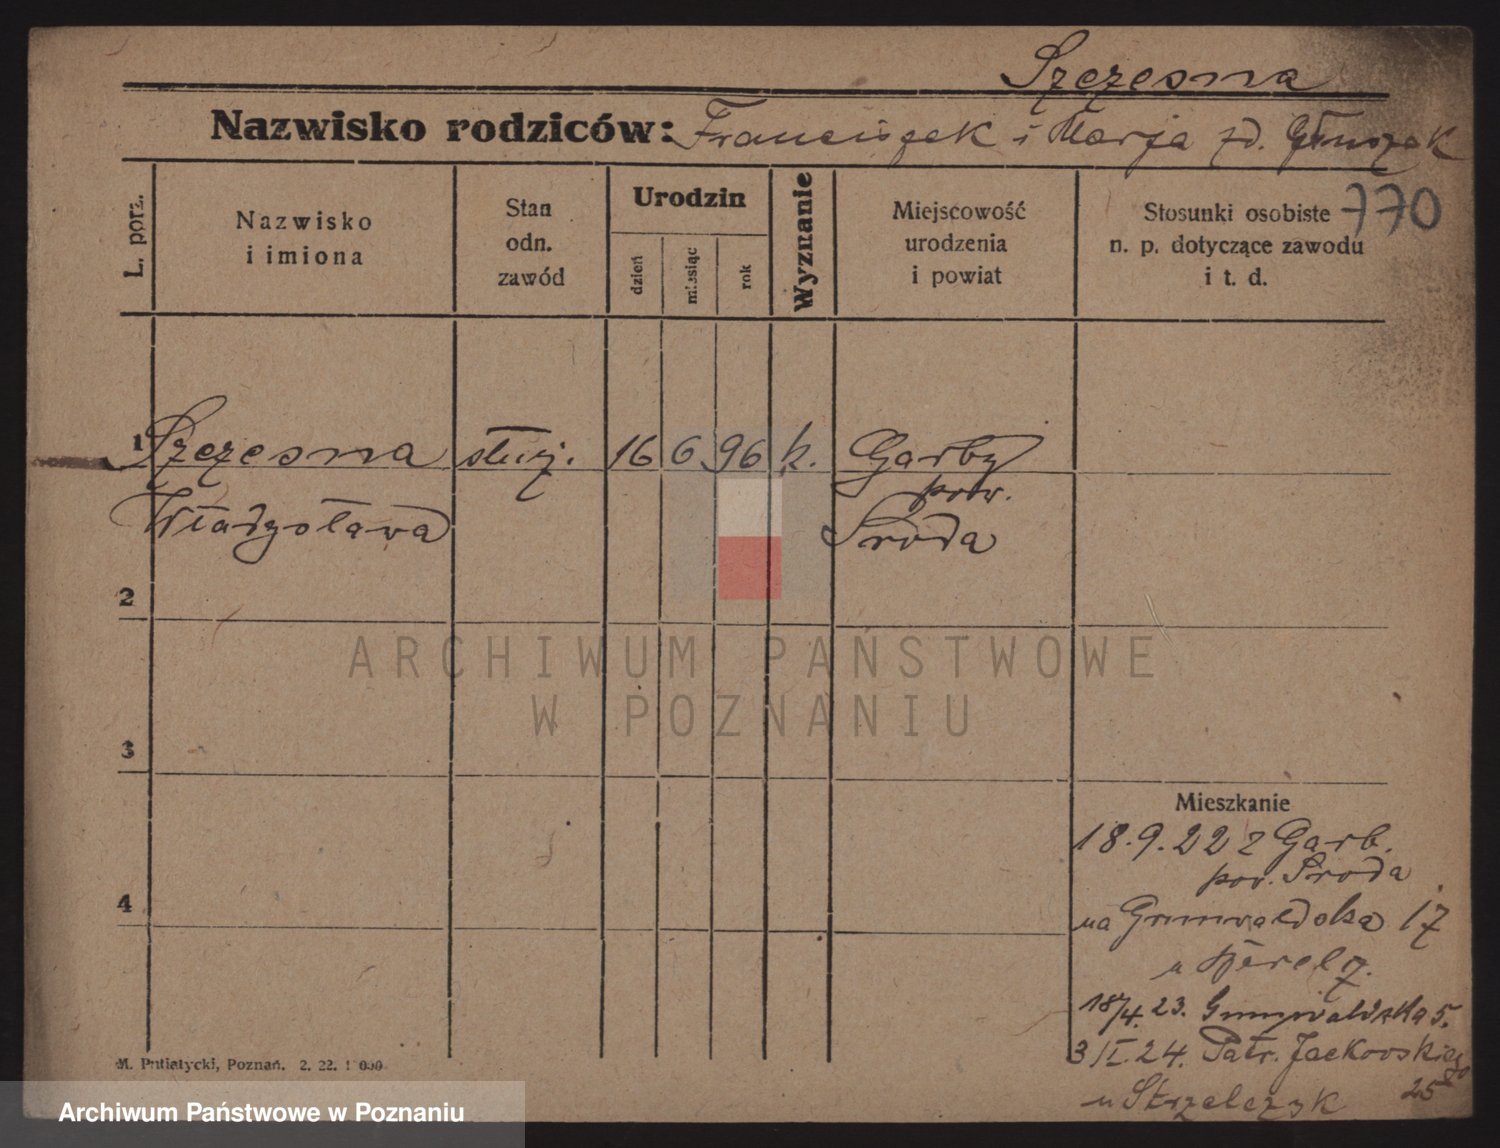 Szczesna
Nazwisko rodziców: Franciszek i Marja zd. Głuszak
770
L. porz.
Nazwisko
i imiona
Stan
odn.
zawód
Urodzin
dzień
miesiąc
rok
Wyznanie
Miejscowość
urodzenia
i powiat
Stosunki osobiste
n. p. dotyczące zawodu
i t. d.
1 Szczesna służ. 16 6 96 k. Garby
pow.
Władysława Środa
2
3
4
Mieszkanie
18.9.22 z Garb.
pow. Środa
na Grunwaldska 17
u
18/4. 23. Grunwaldzka 5.
3/I. 24. Patr. Jackowskiego
25
u Strzelczyk
M. Putiatycki, Poznań. 2. 22.
ARCHIWUM PAŃSTWOWE
W POZNANIU
Archiwum Państwowe w Poznaniu